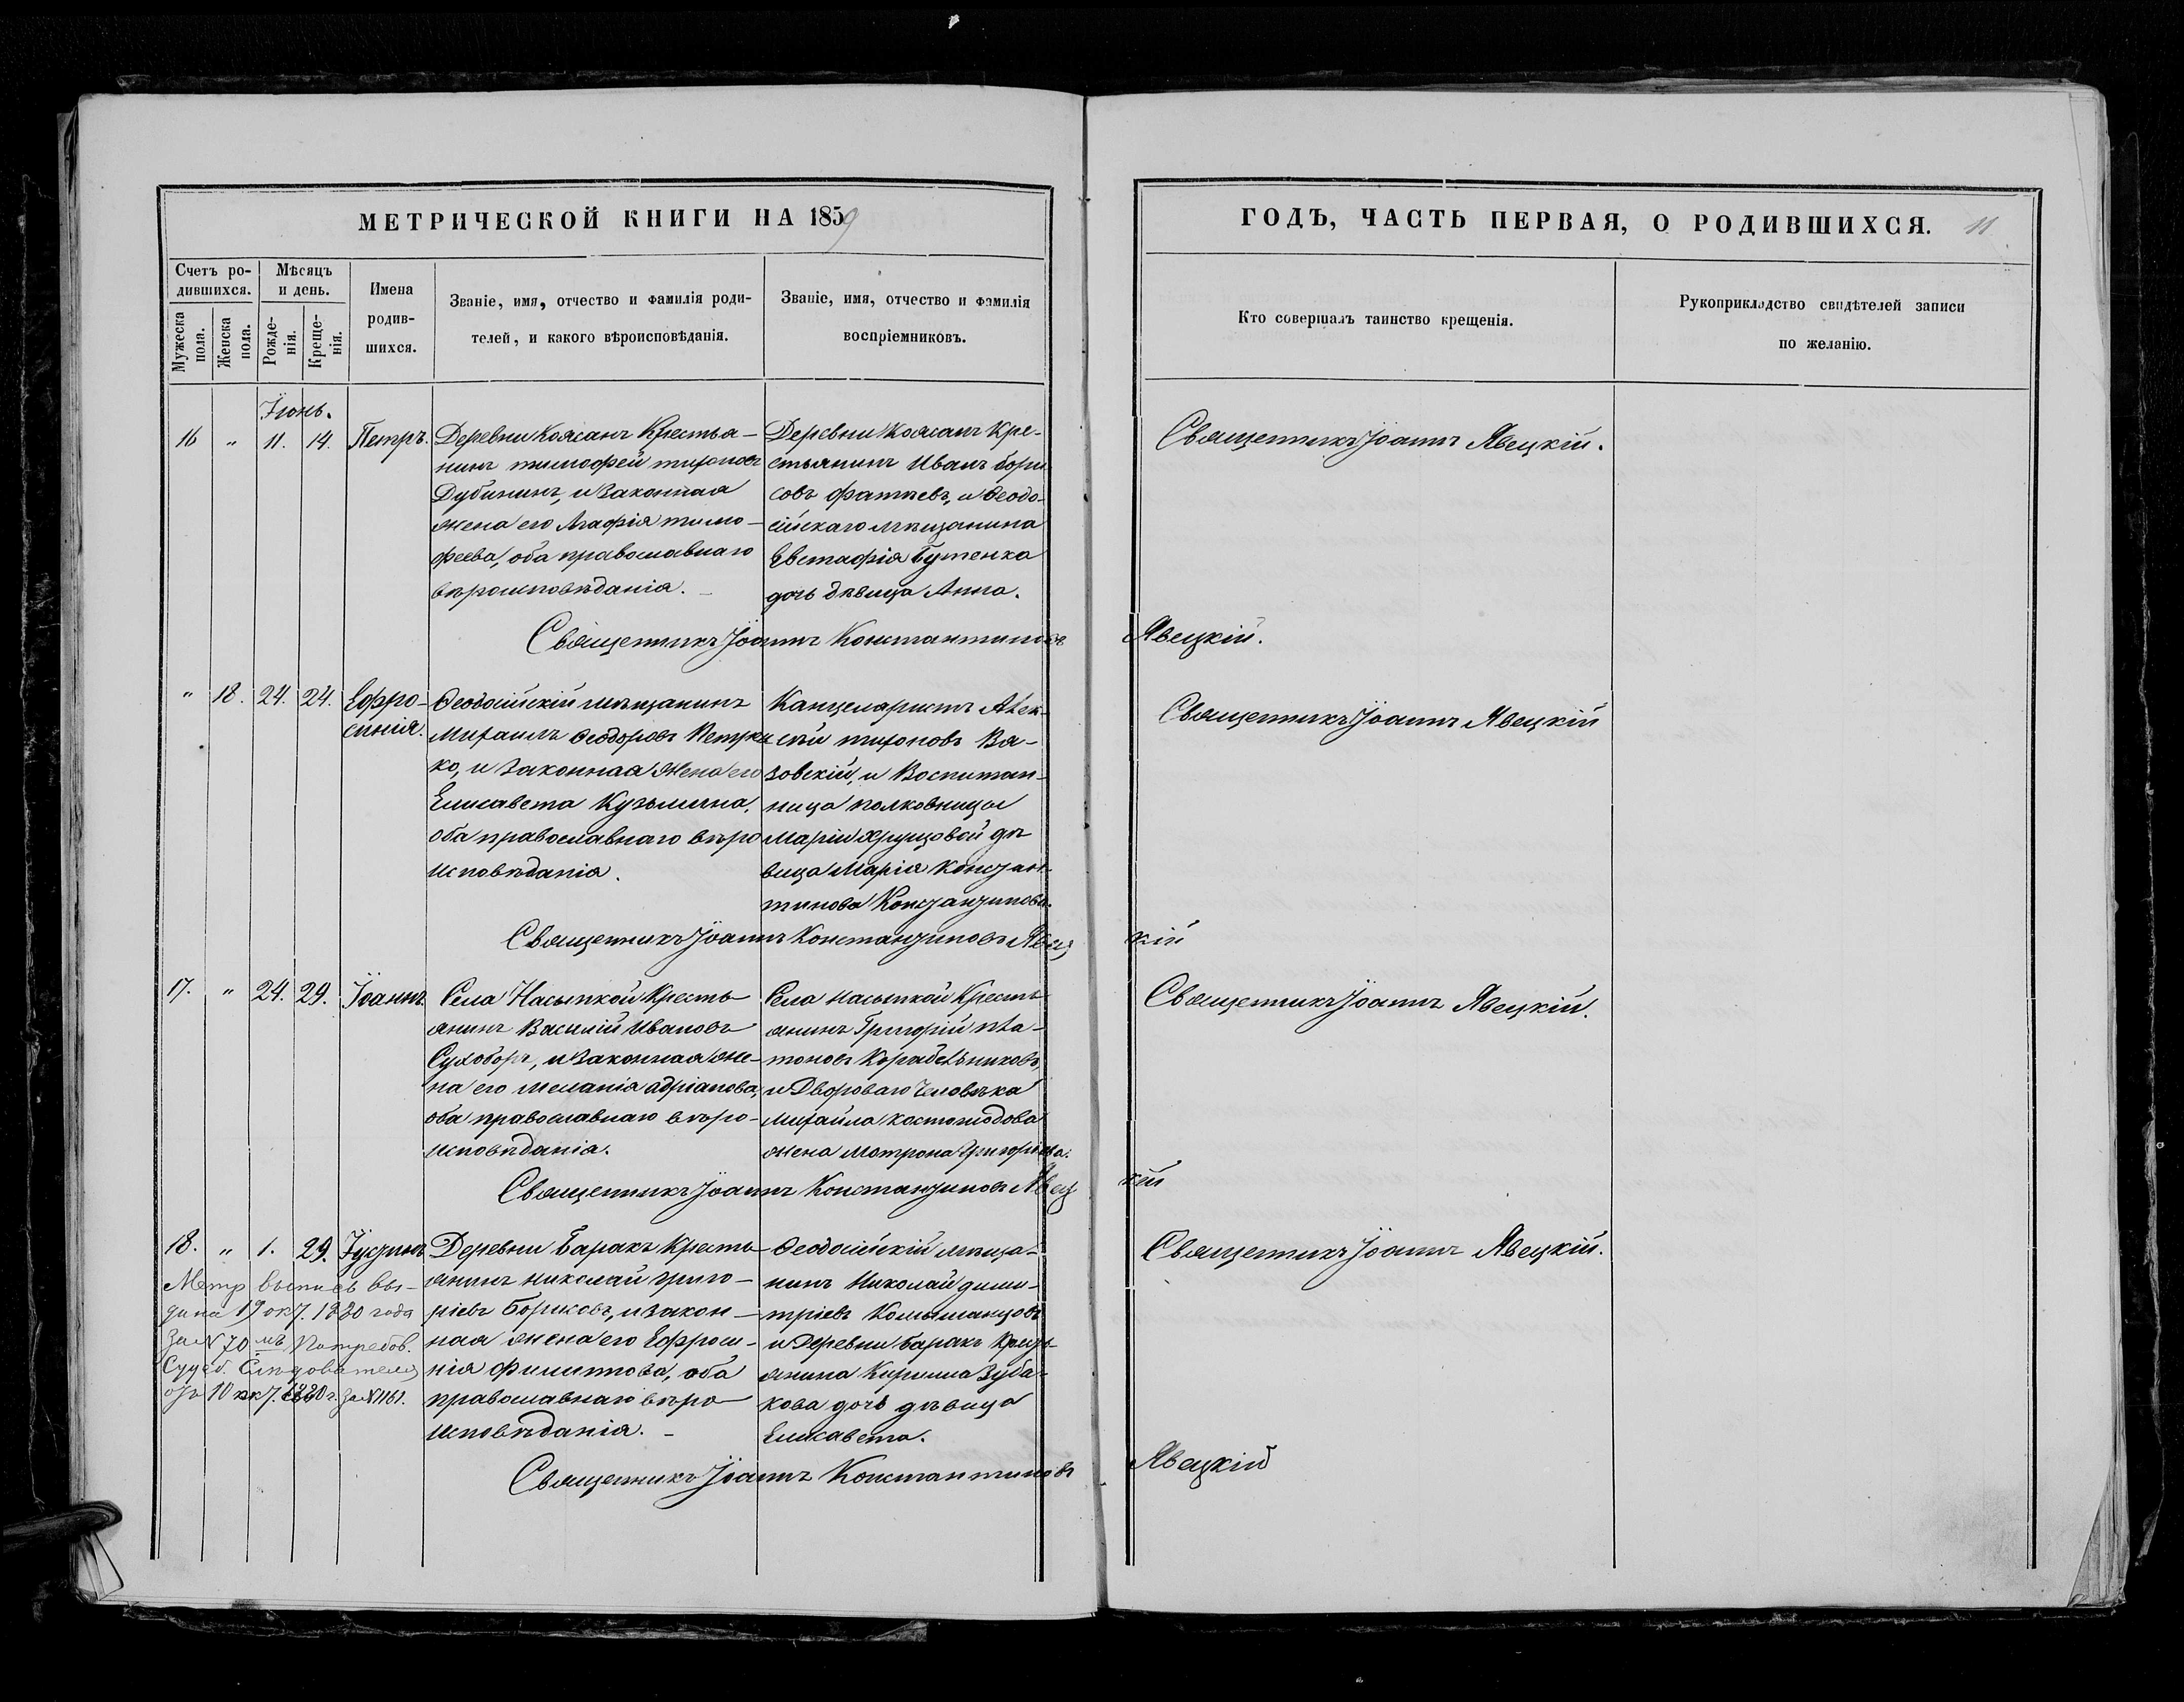 МЕТРИЧЕСКОЙ КНИГИ НА 1859
ГОДЪ, ЧАСТЬ ПЕРВАЯ, О РОДИВШИХСЯ. 11
Счетъ ро-
дившихся.
Мужеска пола.
Женска пола.
Мѣсяцъ
и день.
Рожде-
нія.
Креще-
нія.
Имена
родив-
шихся.
Званіе, имя, отчество и фамилія роди-
телей, и какого вѣроисповѣданія.
Званіе, имя, отчество и фамилія
воспріемниковъ.
Кто совершалъ таинство крещенія.
Рукоприкладство свидѣтелей записи
по желанію.
Іюнь.
16 " 11. 14. Петръ.
Деревни Коясанъ Крестья-
нинъ тимофей тихоновъ
Дубининъ, и законная
жена его Агафія тимо-
феева, оба православнаго
вѣроисповѣданія.
Деревни Коясанъ Кре-
стьянинъ Иванъ бори
совъ фатѣевъ, и Ѳеодо-
сійскаго мѣщанина
Евстафія Бутенка
дочь дѣвица Анна.
Священникъ Іоаннъ Явецкій.
Священникъ Іоаннъ Константиновъ Явецкій.
" 18. 24. 24. Ефро-
синія.
Ѳеодосійскій мѣщанинъ
Михаилъ Ѳеодоровъ Петрен
ко, и законная жена его
Елисавета Кузьмина,
оба православнаго вѣро
исповѣданія.
Канцеляристъ Алек-
сѣй тихоновъ Вя-
зовскій, и Воспитан-
ница полковницы
Маріи Хрущовой дѣ
вица Марія Констан-
тинова Константинова.
Священникъ Іоаннъ Явецкій
Священникъ Іоаннъ Константиновъ Явец кій
17. " 24. 29. Іоаннъ.
Села Насыпкой Кресть-
янинъ Василій Ивановъ
Сухоборъ, и законная же-
на его мелания адріанова,
оба православнаго вѣро-
исповѣданія.
Села насыпкой Кресть-
янинъ Григорій пла-
тоновъ Корабельниковъ,
и Двороваго Человѣка
Михайла костомодова
жена матрона Григоріева.
Священникъ Іоаннъ Явецкій.
Священникъ Іоаннъ Константиновъ Явец кій
18. " 1. 29. Іустинъ
Метр выпись вы-
дана 19 окт. 1880 года
за № 70 мъ, По требов.
Судеб. Слѣдователя
отъ 10 окт. 1880 г. за № 1161.
Деревни Баракъ Кресть-
янинъ николай григо-
ріевъ Бориковъ, и закон-
ная жена его Ефроси-
нія филиппова, оба
православнаго вѣро
исповѣданія.
Ѳеодосійскій мѣща-
нинъ Николай дими-
тріевъ
и Деревни баракъ Крест-
янина Кирилла Зуба-
кова дочь дѣвица
Елисавета.
Священникъ Іоаннъ Явецкій.
Священникъ Іоаннъ Константиновъ Явецкій